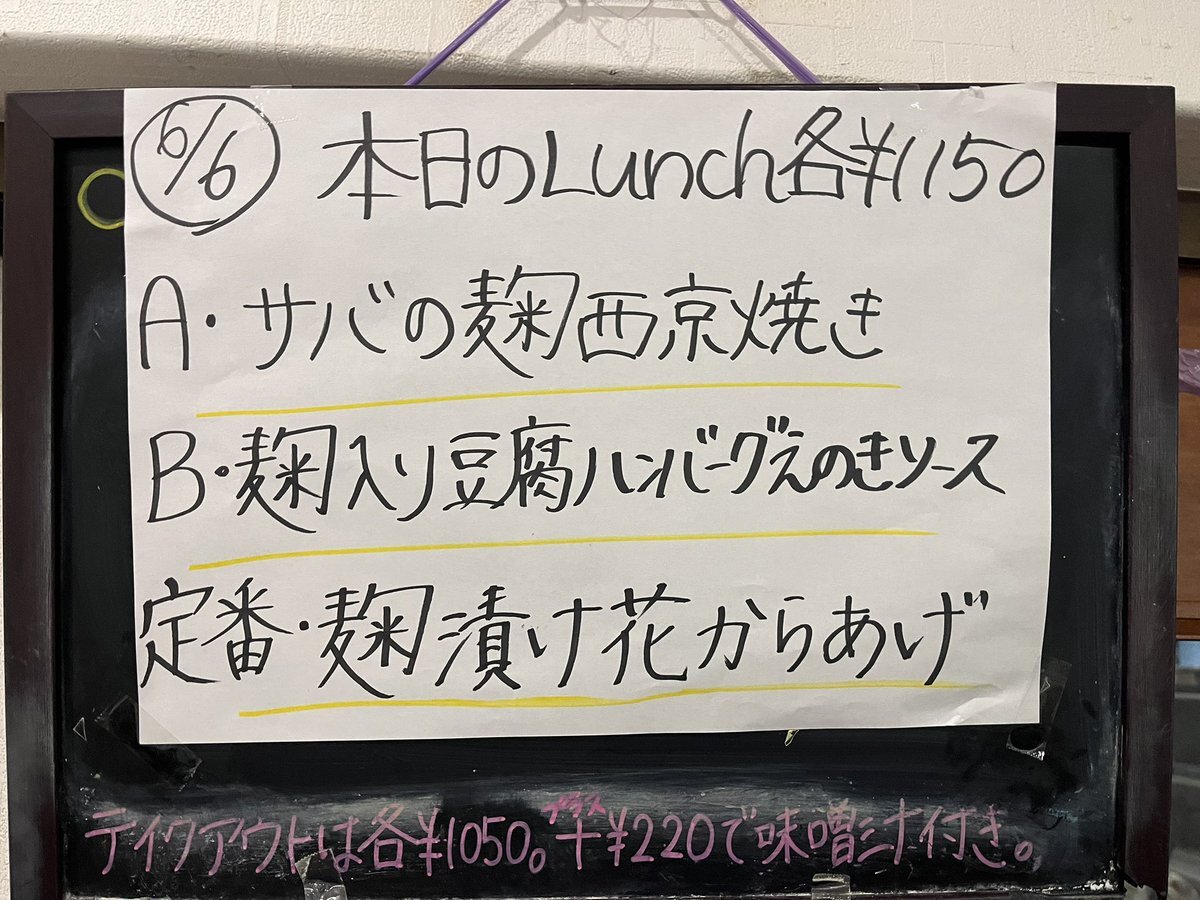 6/6 本日のLunch各¥1150
A・サバの麹西京焼き
B・麹入り豆腐ハンバーグえのきソース
定番・麹漬け花からあげ
プラス
テイクアウトは各¥1050。+¥220で味噌汁付き。